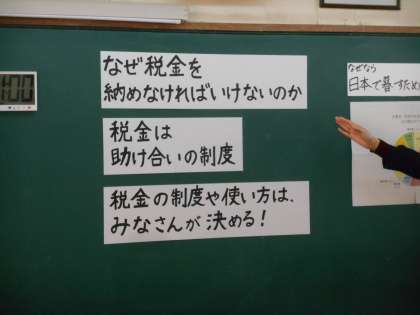 なぜ税金を
納めなければいけないのか
税金は
助け合いの制度
税金の制度や使い方は、
みなさんが決める!
なぜなら
日本で暮すため